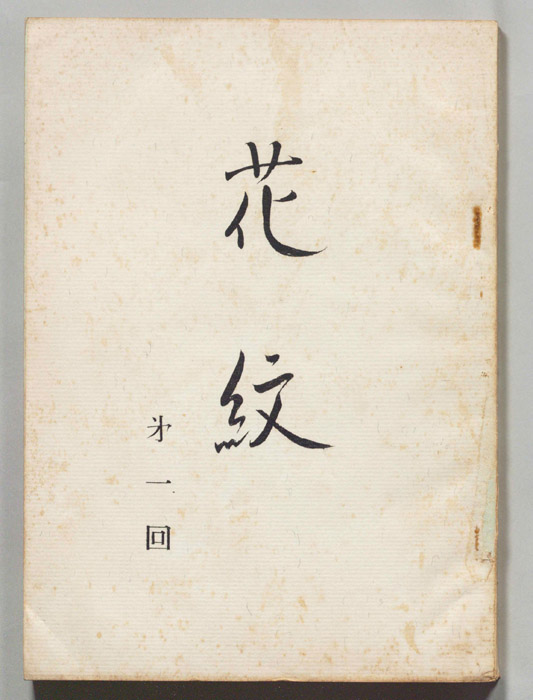 花紋
㐧一回